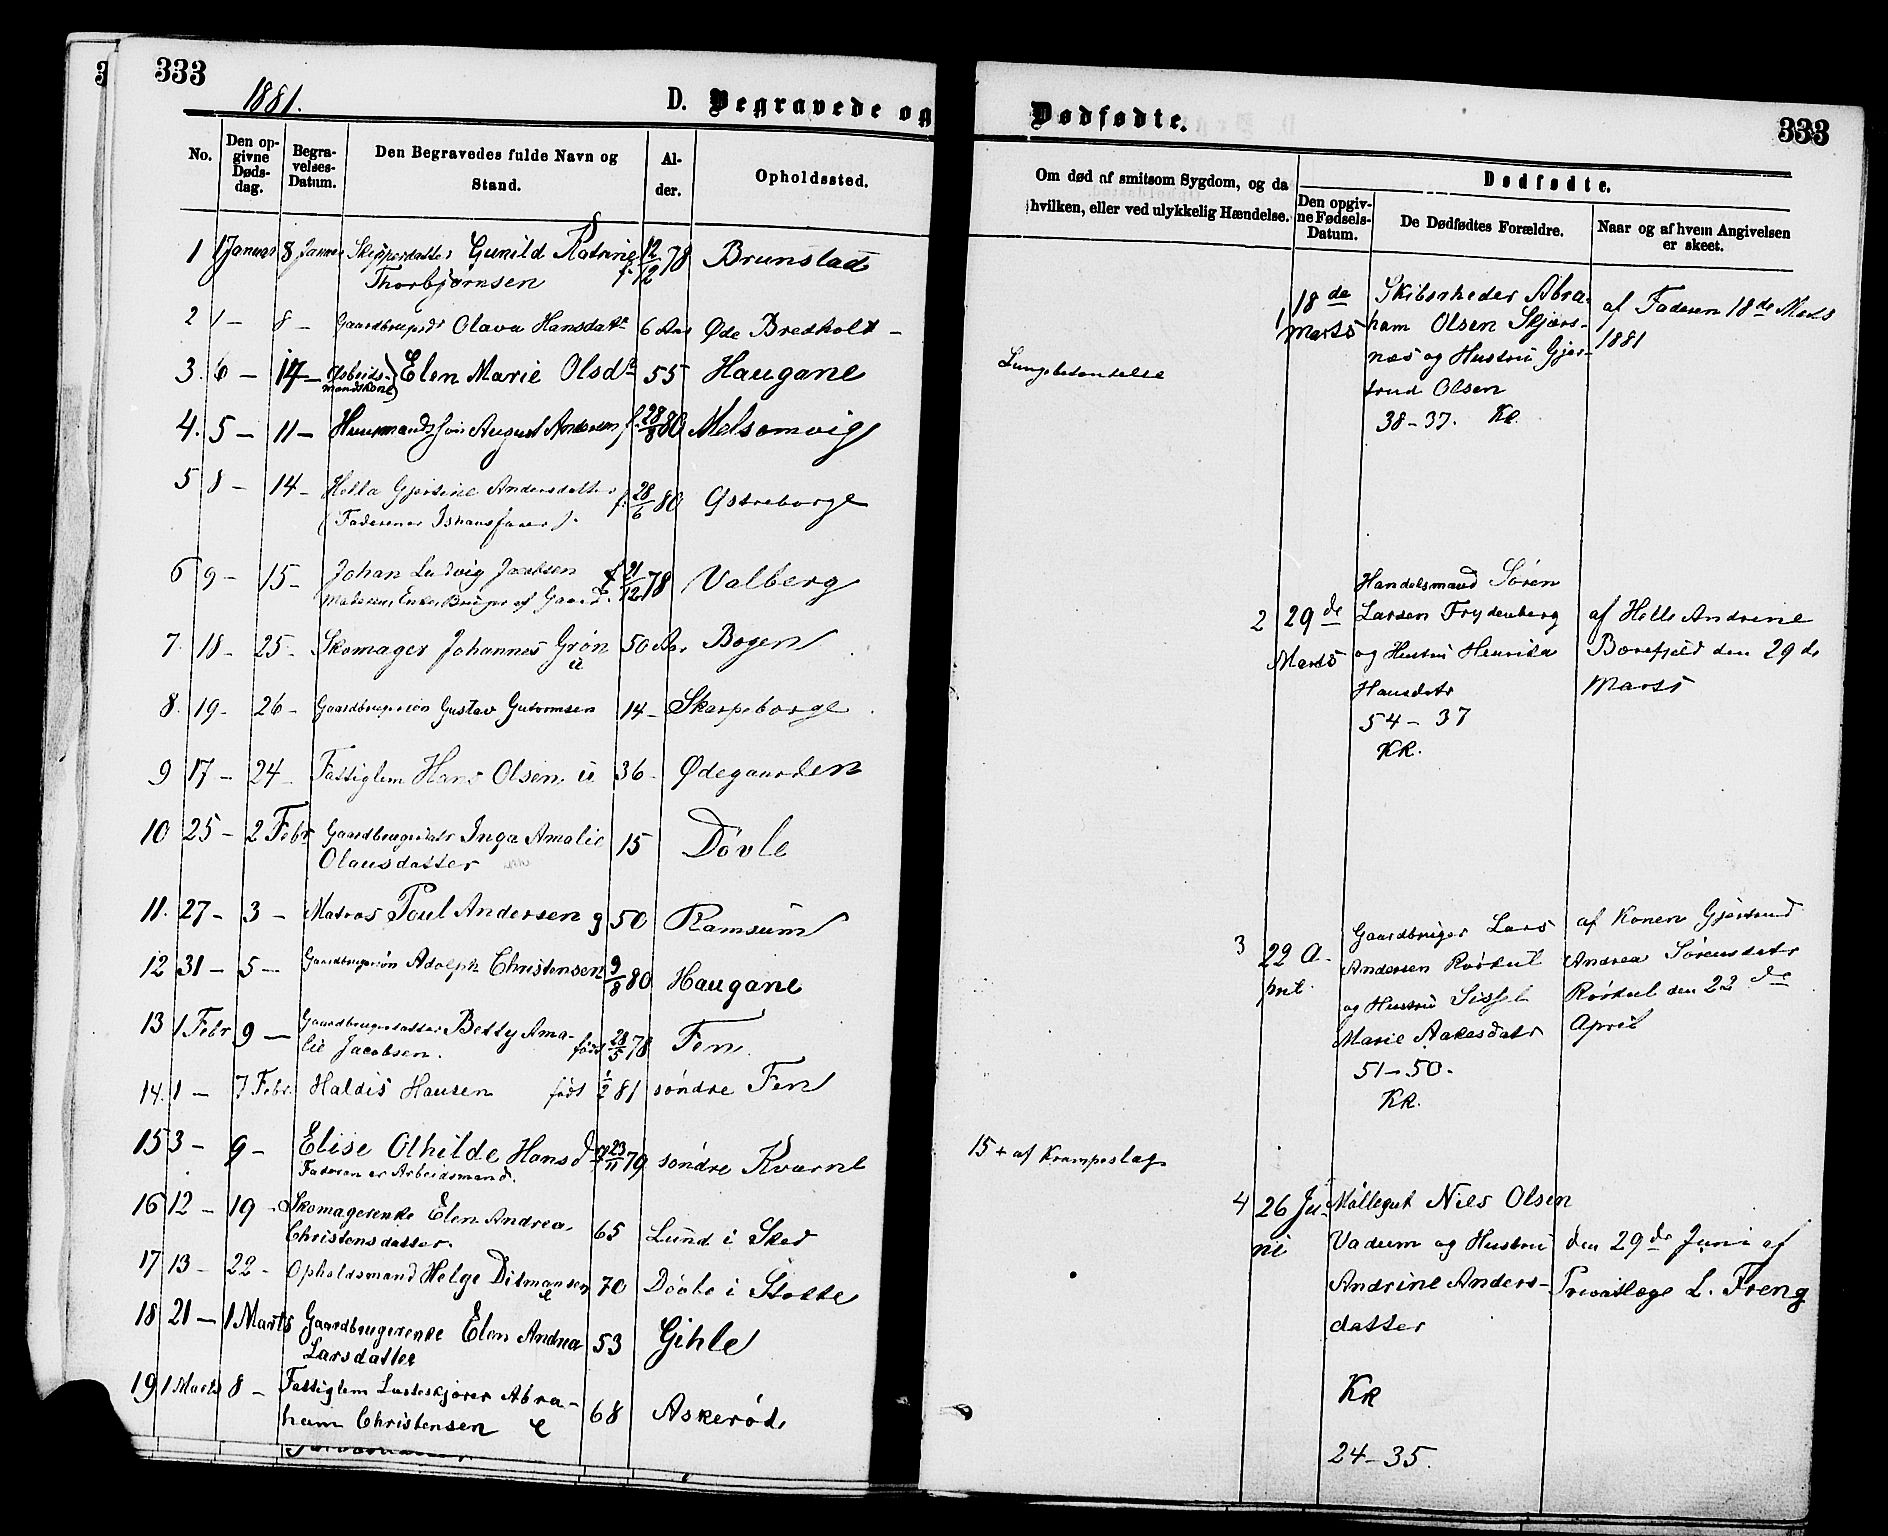 333
1881.
D. Begravede og
No.
Den opgivne Dødsdag.
Begravelses-Datum.
Den Begravedes fulde Navn og Stand.
Alder.
Opholdssted.
1 1 Januar 8 Januar Skipperdatter Gunild Katrine f. 12/12 78 Brunstad
Thorbjørnsen
2 1 — 8 — Gaardbrugerdtr Olava Hansdatr 6 Aar Øde Bredholt —
3. 6 — 14 — Arbeids- Elen Marie Olsdr 55 Haugane
mandskone
4. 5 — 11 — Huusmandssøn August Andersen f. 28/8 80 Melsomvig
5 8 — 14 — Hella Gjertine Andersdatter f. 28/6 80 Østreborge
(Faderen er Ishavsfarer).
6 9 — 15 — Johan Ludvig Jacobsen f. 21/12 78 Valberg
Moderen Enke Bruger af Gaard
7. 18 — 25 — Skomager Johannes Grøn 50 Aar Bogen
u
8. 19 — 26 — Gaardbrugersøn Gustav Guttormsen 14 — Skarpeborge
9 17 — 24 — Fattiglem Hans Olsen u 36 — Ødegaarden
10 25 — 2 Febr Gaardbrugerdatr Inga Amalie 15 Døvle
Olausdatter
11. 27 — 3 — Matros Poul Andersen g 50 Ramsum
12 31 — 5 — Gaardbrugersøn Adolph Christensen 9/8 80 Haugane
13 1 Febr 9 — Gaardbrugerdatter Betty Ama-
lie Jacobsen. født 28/5 78 Fen
14. 1 — 7 Febr. Haldis Hansen født 1/2 81 søndre Fen
15 3 — 9 — Elise Othilde Hansd f 23/11 79 søndre Kvarne
Faderen er Arbeidsmand.
16 12 — 19 — Skomagerenke Elen Andrea 65 Lund i Sked
Christensdatter.
17 13 — 22 — Opholdsmand Helge Ditmansen 70 Døvle i Stokke
e
18 21 — 1 Marts Gaardbrugerenke Elen Andrea 53 Gihle
Larsdatter
19 1 Marts 8 — Fattiglem Abra-
ham Christensen e 68 Askerød
Dødfødte.
333
Om død af smitsom Sygdom, og da
hvilken, eller ved ulykkelig Hændelse.
Dødfødte.
Den opgivne Fødsels-Datum.
De Dødfødtes Forældre.
Naar og af hvem Angivelsen er skeet.
Lungebetændelse
15 + af Krampeslag
1, 18de Marts
Skibsrheder Abra-
ham Olsen Skjærs-
næs og Hustru Gjer-
trud Olsen
38 — 37. KR
af Faderen 18de Marts
1881
2 29de Marts
Handelsmand Søren
Larsen Frydenberg
og Hustru Henrika
Hansdatr
54 — 37
KR.
af Helle Andrine
Borefjeld den 29de
Marts
3 22 A-
pril
Gaardbruger Lars
Andersen Rørkul
og Hustru Sissel
Marie Aakesdatr
51 — 50.
KR.
af Konen Gjertrud
Andrea Sørensdatr
Rørkul den 22de
April
4 26 Ju-
ni
Møllegut Niels Olsen
Vadum og Hustru
Andrine Anders-
datter
KR
24 — 35.
den 29de Juni af
Privatlæge L. Freng